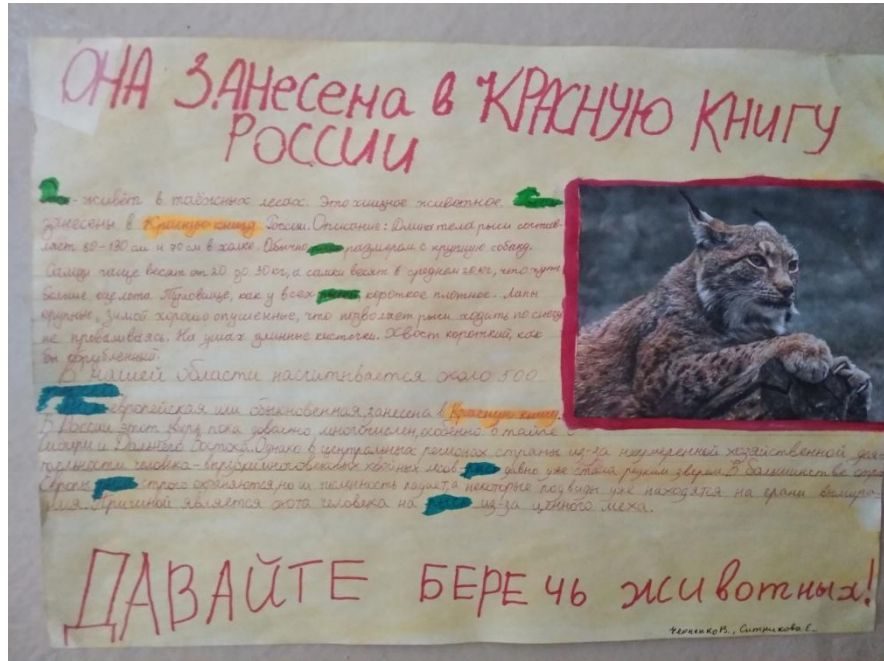 ОНА ЗАНЕСЕНА в КРАСНУЮ КНИГУ
РОССИИ
- живёт в таёжных лесах. Это хищное животное.
занесены в Красную книгу России. Описание: Длина тела рыси состав-
ляет 80-130 см и 70 см в холке. Обычно размером с крупную собаку.
Самцы чаще весят от 20 до 30 кг, а самки весят в среднем 20 кг, что чуть
больше оцелота. Туловище, как у всех рысей, короткое плотное. Лапы
крупные, зимой хорошо опушённые, что позволяет рыси ходить по снегу
не проваливаясь. На ушах длинные кисточки. Хвост короткий, как
бы обрубленный.
В нашей области насчитывается около 500
европейская или обыкновенная, занесена в Красную книгу.
В России этот зверь пока довольно многочислен, особенно в тайге
Сибири и Дальнего Востока. Однако в центральных регионах страны из-за неумеренной хозяйственной дея-
тельности человека - вырубки многовековых хвойных лесов - давно уже стала редким зверем. В большинстве стран
Европы строго охраняются, но их численность падает, а некоторые подвиды уже находятся на грани вымира-
ния. Причиной является охота человека на из-за ценного меха.
ДАВАЙТЕ БЕРЕЧЬ животных!
Ситникова Е.